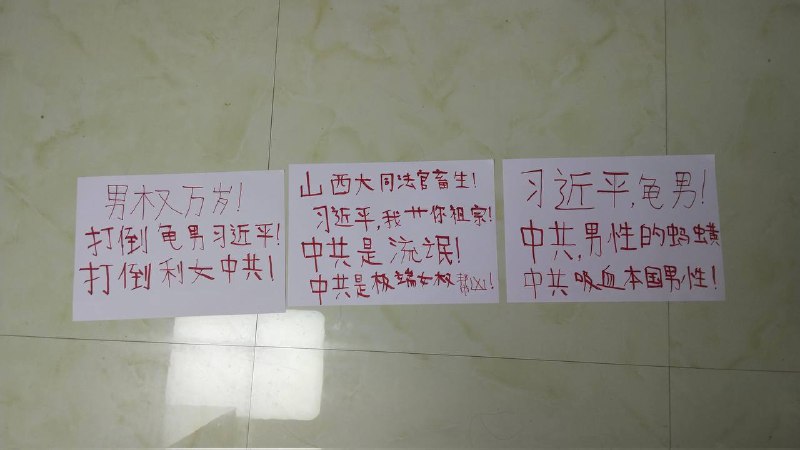 男权万岁!
打倒龟男习近平!
打倒利女中共!
山西大同法官畜生!
习近平,我艹你祖宗!
中共是流氓!
中共是极端女权!
习近平,龟男!
中共,男性的蚂蟥
中共吸血本国男性!